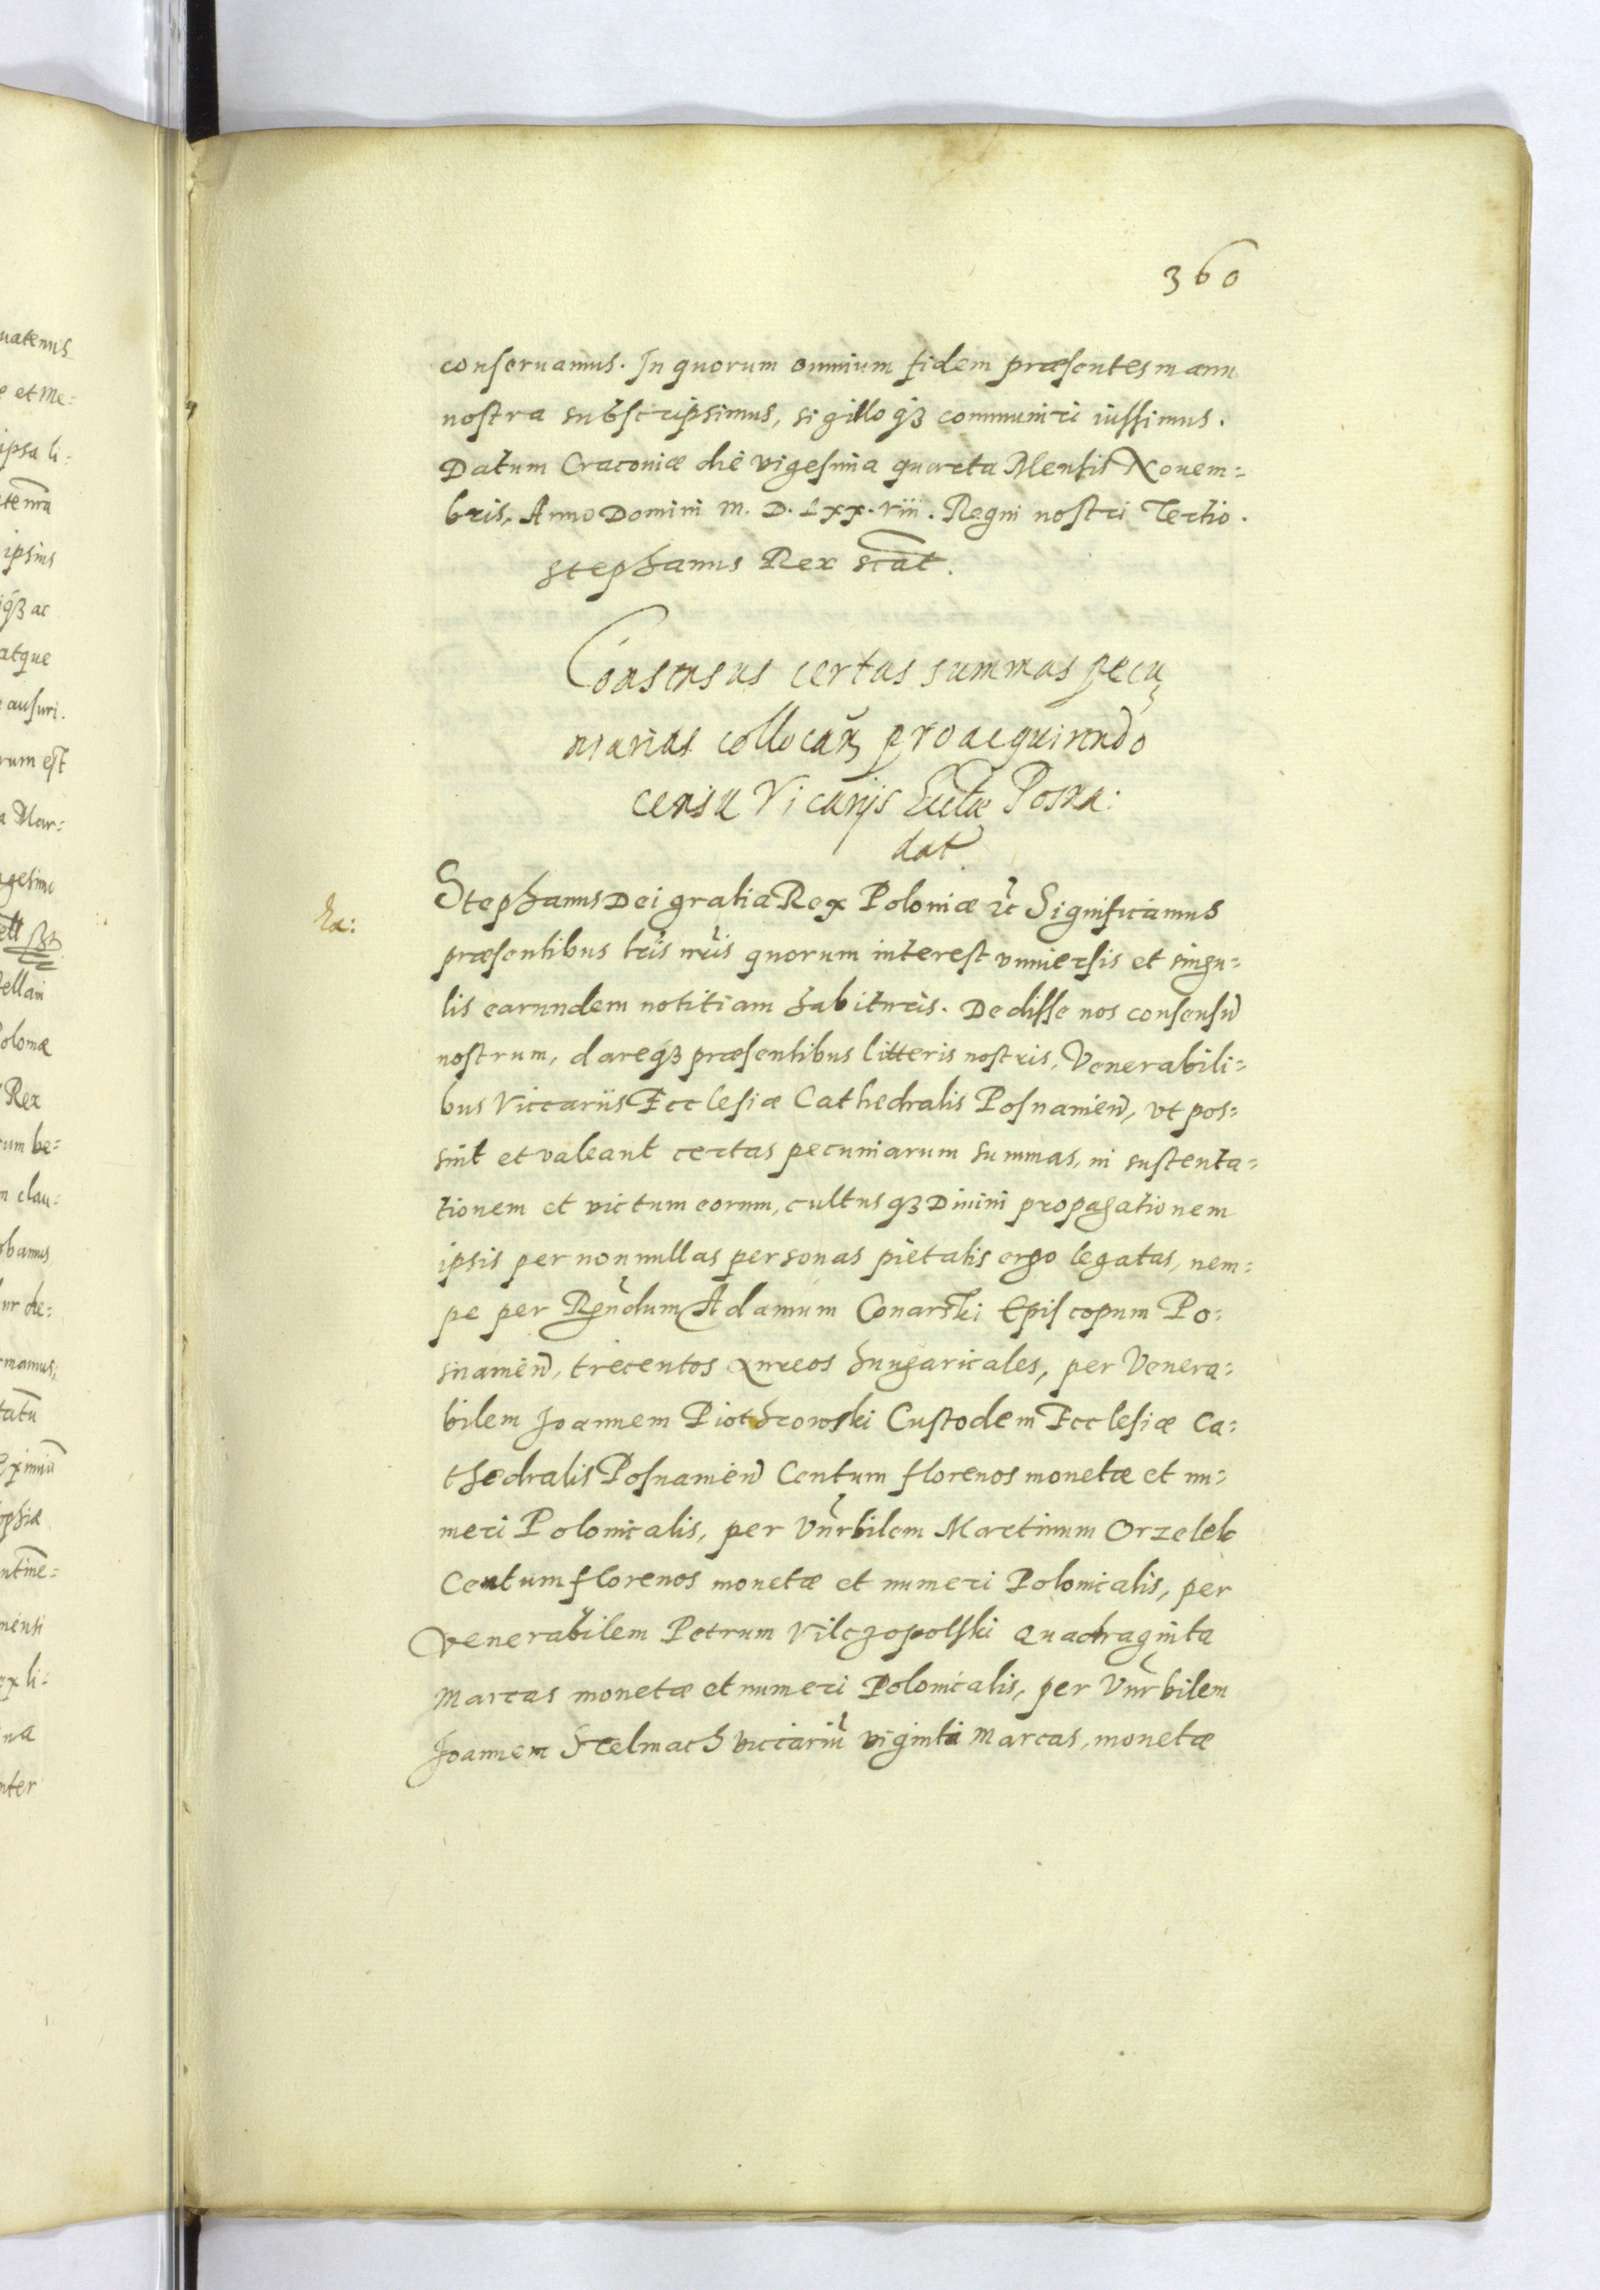 360
conseruamus. In quorum omnium fidem præsentes manu
nostra subscripsimus, sigilloqȝ communiri iussimus.
Datum Cracoviæ die vigesima quarta Mensis Nouem=
bris, Anno Domini M. D. Lxx. viii. Regni nostri Tertio.
Stephanus Rex scāt.
Consensus certas summas pecu
niarias collocañ pro acquirendo
censu Vicarijs Ecclæ Posna:
dat
Ra:
Stephanus Dei gratia Rex Poloniæ ꝛc Significamus
præsentibus lris nris quorum interest vniuersis et singu=
lis earundem notitiam habituris. Dedisse nos consensũ
nostrum, dareqȝ præsentibus litteris nostris, Venerabili=
bus Viccariis Ecclesiæ Cathedralis Posnamien, vt pos=
sint et valeant certas pecuniarum summas, in sustenta=
tionem et victum eorum, cultusqȝ Diuini propagationem
ipsis per nonnullas personas pietatis ergo legatas, nem=
pe per Rñdum Adamum Conarski Episcopum Po=
snamien, trecentos Aureos hungaricales, per Venera=
bilem Joannem Piothrowski Custodem Ecclesiæ Ca=
thedralis Posnamien Centum florenos monetæ et nu=
meri Polonicalis, per Vnrbilem Martinum Orzelek
Centum florenos monetæ et numeri Polonicalis, per
Venerabilem Petrum Vilczopolski Quadraginta
Marcas monetæ et numeri Polonicalis, per Vnrbilem
Joannem Stelmach viccariũ viginti Marcas, monetæ